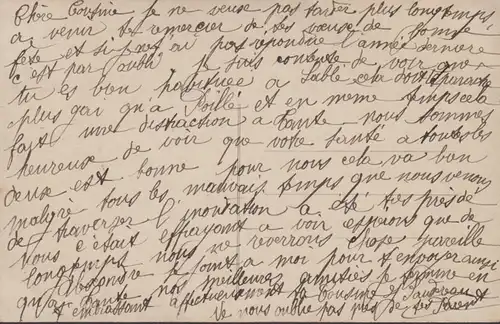 Chère Cousine je ne veux pas tarder plus longtemps
a venir te remercier de tes vœux de bonne
fête et si je n'ai pas répondre l'année dernière
c'est par oubli je suis contente de voir que
tu es bien habituée a Sablé cela doit paraitre
plus gai qu'a Poillé et en meme temps cela
fait une distraction a Tante nous sommes
heureux de voir que votre santé a toutes les
deux est bonne pour nous cela va bien
malgré tous les mauvais temps que nous venons
de traverser l'inondation a été très près de
nous c'était effrayant a voir esperons que de
longtemps nous ne reverrons chose pareille
Alexandre se joint a moi pour t'envoyer ainsi
qu'a Tante nos meilleures amitiés je termine en
t'embrassant affectueusement ta cousine
Je nous oublie pas près de tes